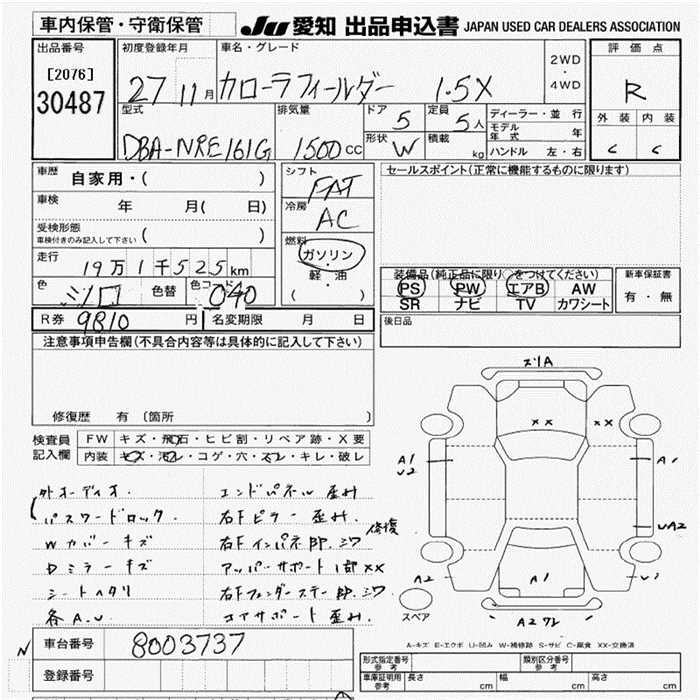 車内保管・守衛保管
JU 愛知 出品申込書 JAPAN USED CAR DEALERS ASSOCIATION
出品番号
[2076]
30487
初度登録年月
27 11月
車名・グレード
カローラフィールダー 1.5X
2WD
・
4WD
評価点
R
外装 内装
C C
型式
DBA-NRE161G
排気量
1500 CC
ドア
5
形状
W
定員
5人
積載
kg
ディーラー・並行
モデル年式 年
ハンドル 左・右
車歴
自家用・( )
車検
年 月( 日)
受検形態
車検付きのみ記入して下さい ( )
走行
19万1千525km
色
シロ
色替
色コード
040
シフト
FAT
冷房
AC
燃料
ガソリン
・
軽・油
( )
R券 9810 円
名変期限 月 日
セールスポイント(正常に機能するものに限ります)
装備品(純正品に限り○をつけてください)
PS PW エアB AW
SR ナビ TV カワシート
新車保証書
有・無
後日品
注意事項申告欄(不具合内容等は具体的に記入して下さい)
修復歴 有 〔箇所 〕
検査員
記入欄
FW キズ・飛石・ヒビ割・リペア跡・X要
内装 キズ・汚レ・コゲ・穴・スレ・キレ・破レ
外オーディオ.
パスワードロック.
Wカバーキズ
Dミラーキズ
シートヘタリ
各A.U
エンドパネル歪み
右Fピラー歪み.
修復
右Fインパネ部.シワ
アッパーサポート1部XX
右Fフェンダーステー部.シワ
コアサポート歪み.
スリA
XX
XX
A1
U2
A1
UA2
A2
A1
スペア
A-キズ E-エクボ U-凹み W-補修跡 S-サビ C-腐食 XX-交換済
車台番号
8003737
登録番号
型式指定番号
参考
類別区分番号
参考
車庫証明用
参考
長さ cm
幅 cm
高さ cm